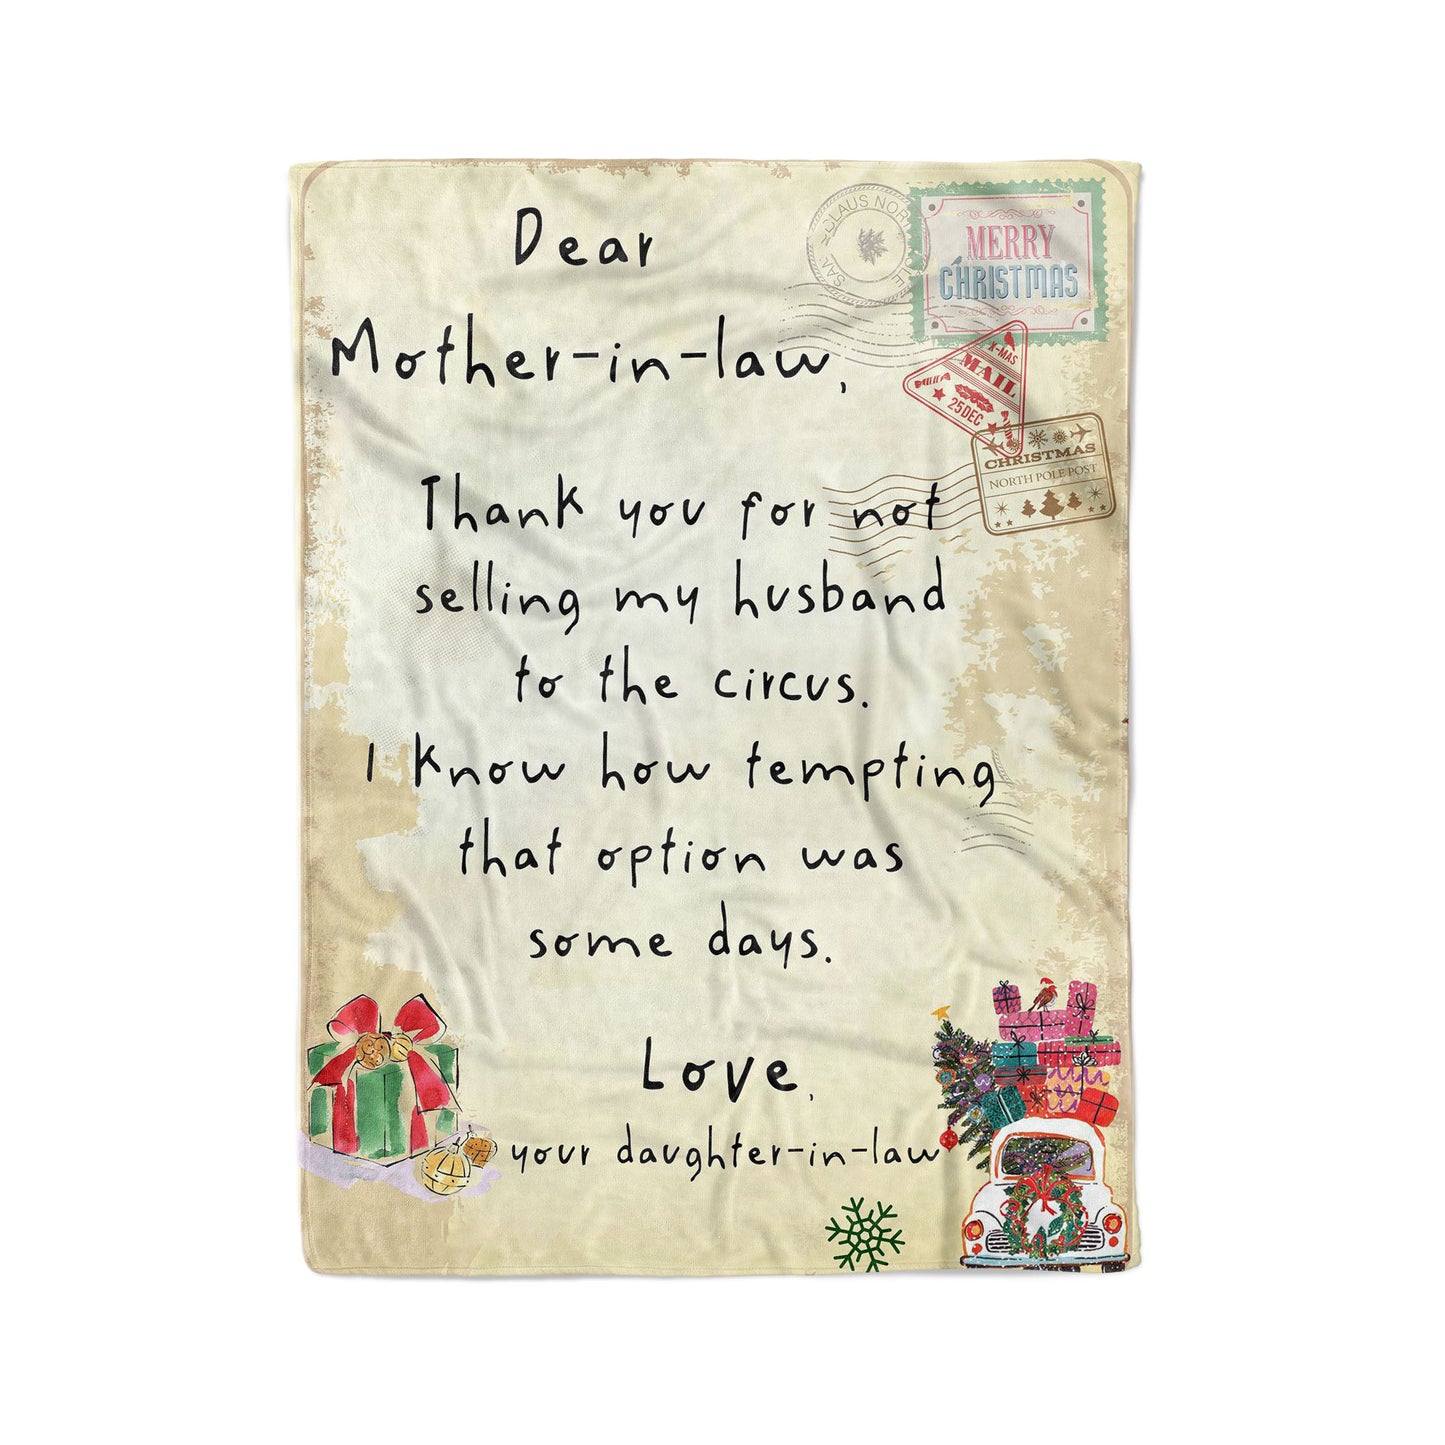 Dear
Mother-in-law,
Thank you for not
selling my husband
to the circus.
I know how tempting
that option was
some days.
Love,
your daughter-in-law
MERRY
CHRISTMAS
X-MAS
MAIL
25 DEC
CHRISTMAS
NORTH POLE POST